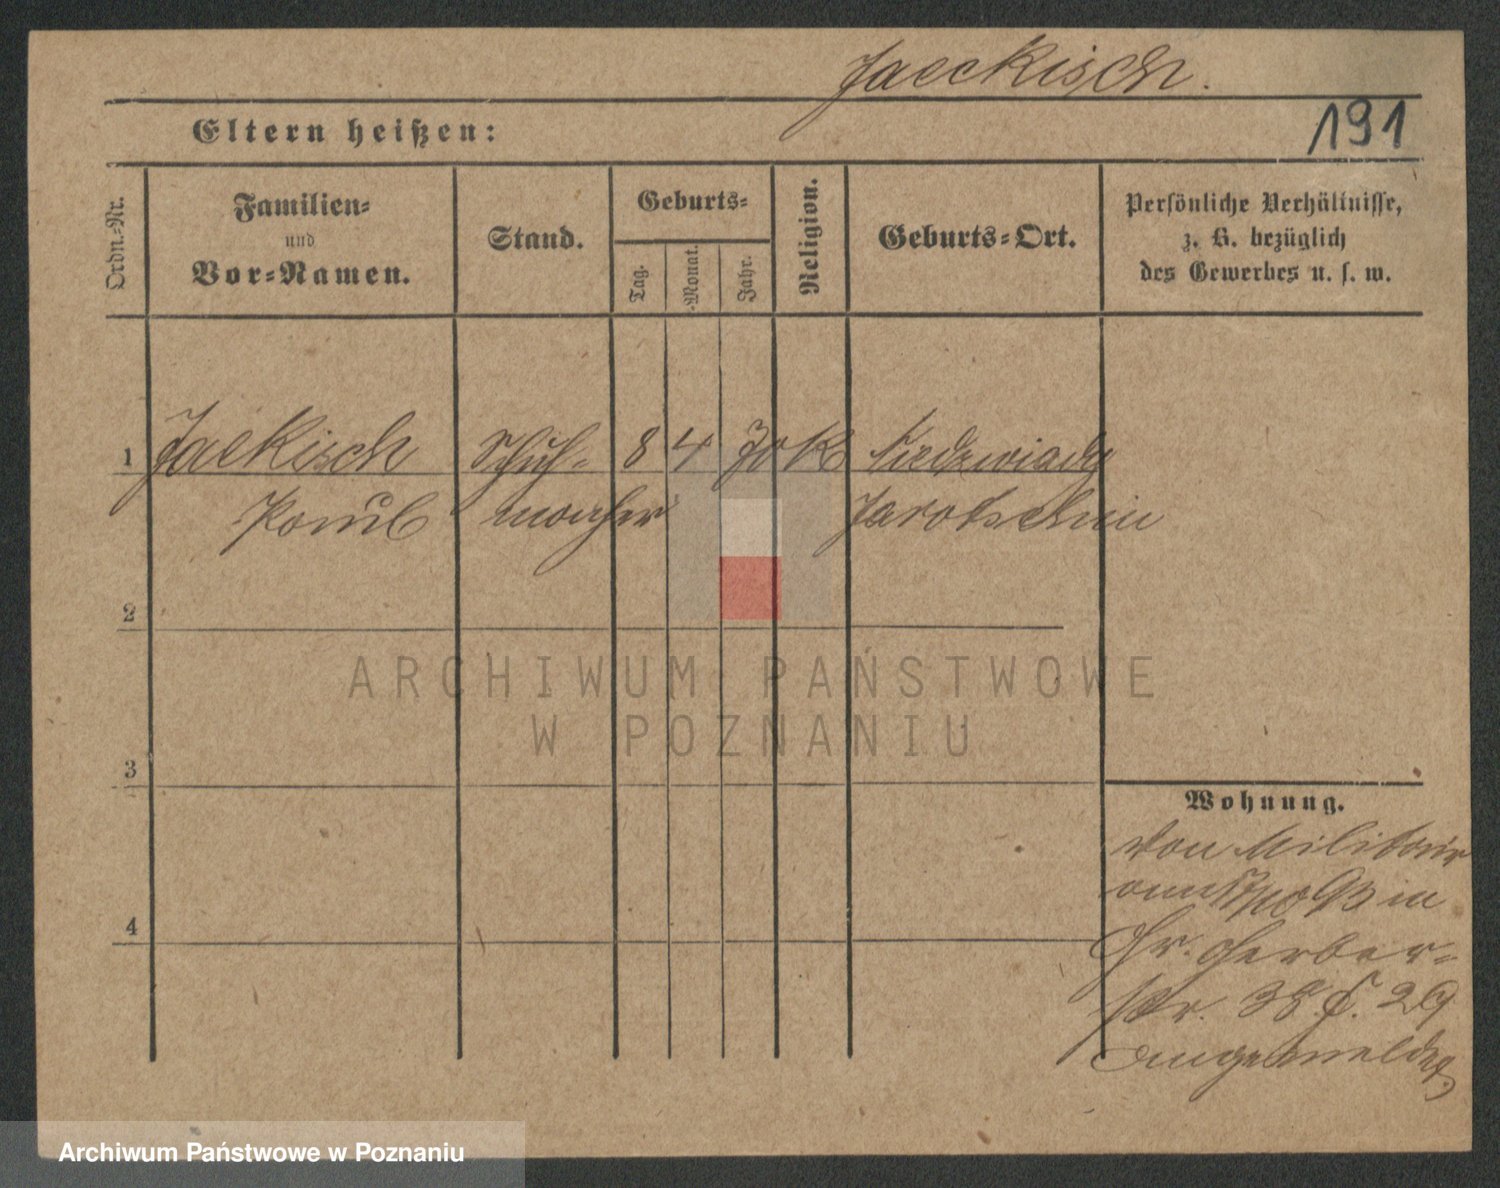 Jaeckisch.
191
Eltern heißen:
Ordn.-Nr.
Familien-
und
Vor-Namen.
Stand.
Geburts-
Tag.
Monat.
Jahr.
Religion.
Geburts-Ort.
Persönliche Verhältnisse,
z. B. bezüglich
des Gewerbes u. s. w.
1 Jaekisch Schuh- 8 4 70 K
Paul macher Jarotschin
2
3
4
Wohnung.
von Militair
in
Gr. Gerber-
str. 38 29
angemeldet
ARCHIWUM PAŃSTWOWE
W POZNANIU
Archiwum Państwowe w Poznaniu